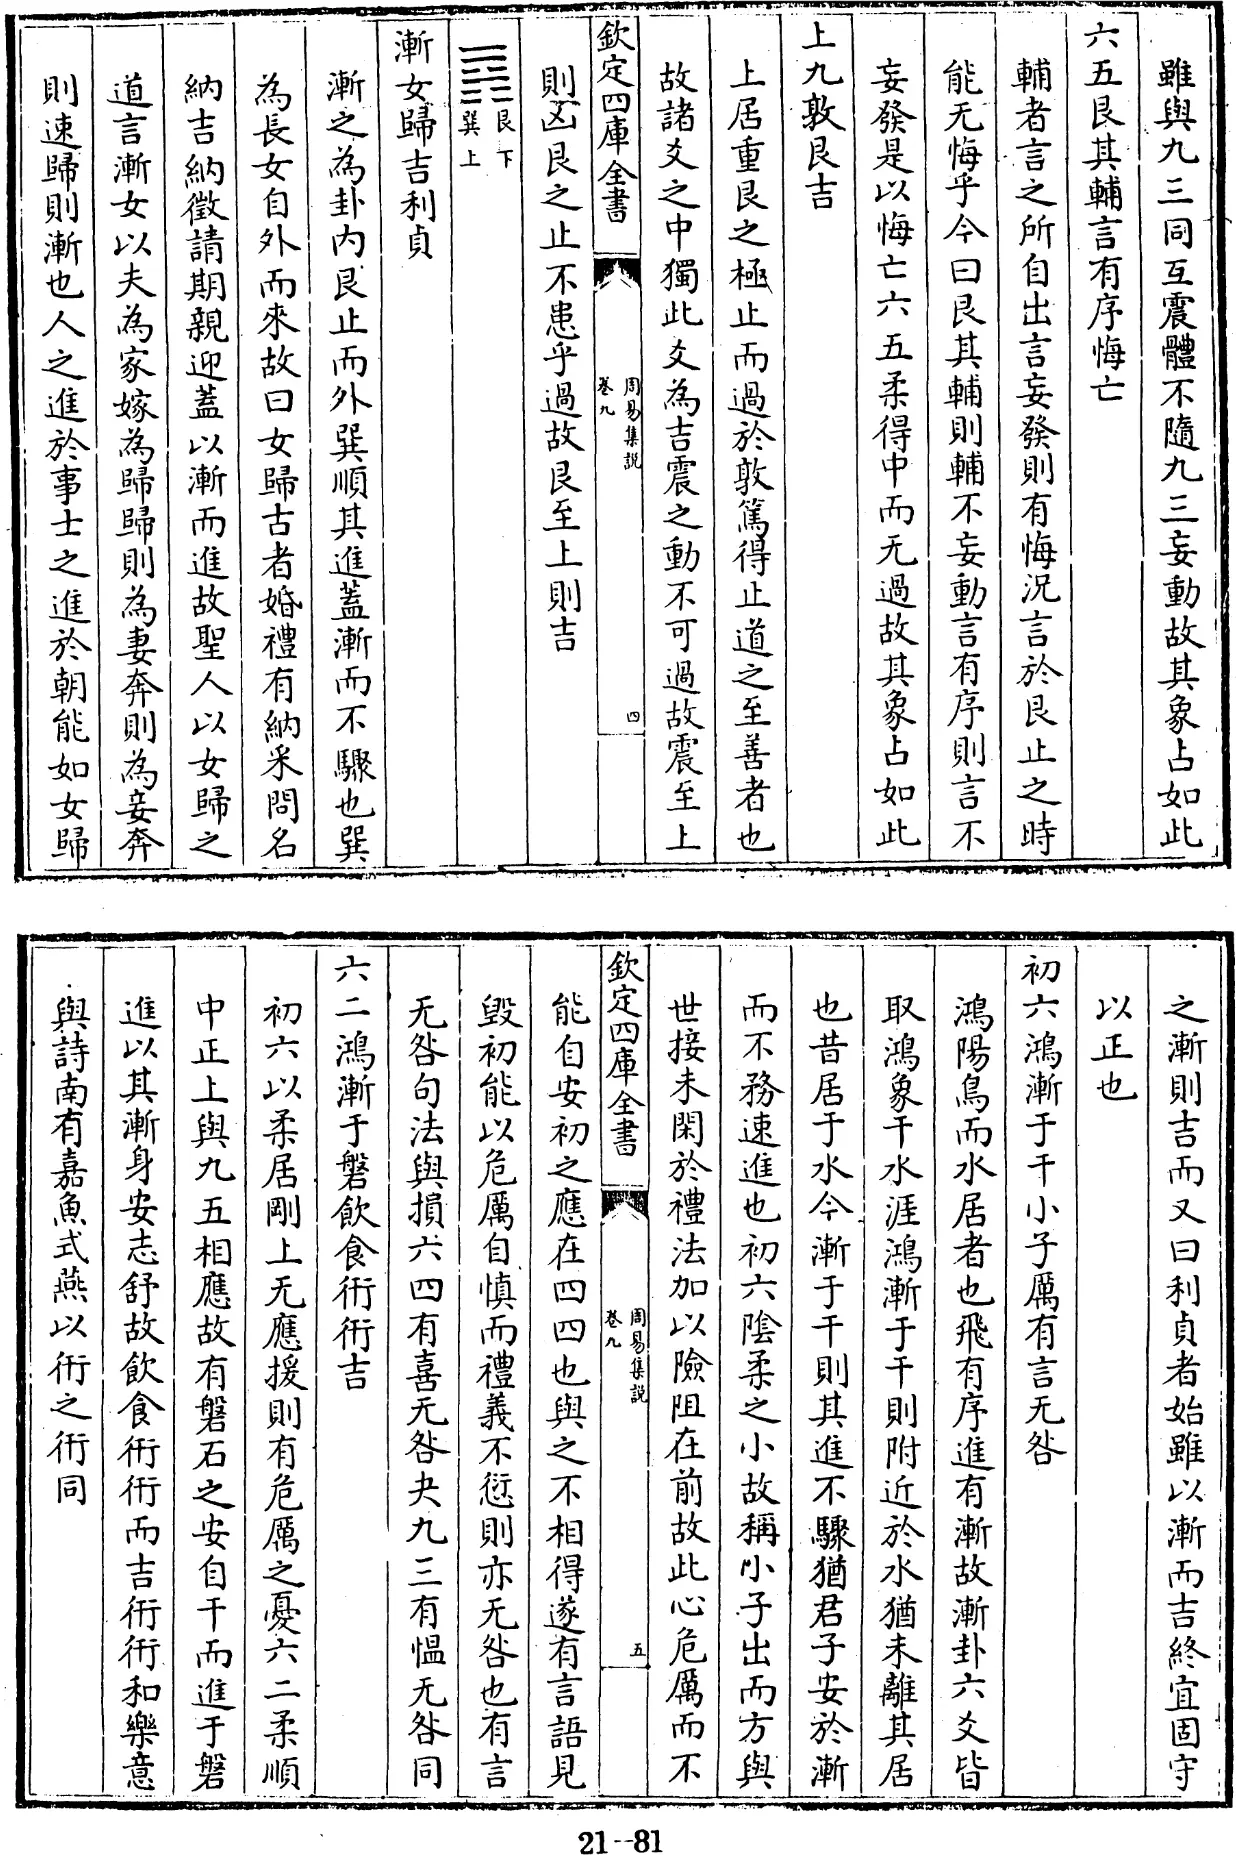 雖與九三同互震體不隨九三妄動故其象占如此
六五艮其輔言有序悔亡
輔者言之所自出言妄發則有悔況言於艮止之時
能无悔乎今曰艮其輔則輔不妄動言有序則言不
妄發是以悔亡六五柔得中而无過故其象占如此
上九敦艮吉
上居重艮之極止而過於敦篤得止道之至善者也
故諸爻之中獨此爻為吉震之動不可過故震至上
欽定四庫全書
周易集說
卷九
四
則凶艮之止不患乎過故艮至上則吉
艮下
巽上
漸女歸吉利貞
漸之為卦内艮止而外巽順其進蓋漸而不驟也巽
為長女自外而來故曰女歸古者婚禮有納采問名
納吉納徵請期親迎蓋以漸而進故聖人以女歸之
道言漸女以夫為家嫁為歸歸則為妻奔則為妾奔
則速歸則漸也人之進於事士之進於朝能如女歸
之漸則吉而又曰利貞者始雖以漸而吉終宜固守
以正也
初六鴻漸于干小子厲有言无咎
鴻陽鳥而水居者也飛有序進有漸故漸卦六爻皆
取鴻象干水涯鴻漸于干則附近於水猶未離其居
也昔居于水今漸于干則其進不驟猶君子安於漸
而不務速進也初六陰柔之小故稱小子出而方與
世接未閑於禮法加以險阻在前故此心危厲而不
欽定四庫全書
周易集說
卷九
五
能自安初之應在四四也與之不相得遂有言語見
毀初能以危厲自慎而禮義不愆則亦无咎也有言
无咎句法與損六四有喜无咎夬九三有愠无咎同
六二鴻漸于磐飲食衎衎吉
初六以柔居剛上无應援則有危厲之憂六二柔順
中正上與九五相應故有磐石之安自干而進于磐
進以其漸身安志舒故飲食衎衎而吉衎衎和樂意
與詩南有嘉魚式燕以衎之衎同
21--81